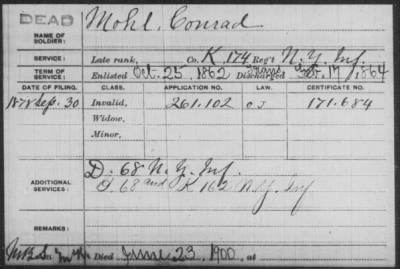 DEAD
Mohl, Conrad
NAME OF SOLDIER:
SERVICE: Late rank, Co. K, 174 Reg't N.Y. Inf.
TERM OF SERVICE: Enlisted Oct. 25, 1862 Discharged Feb. 17, 1864
Trans
DATE OF FILING. CLASS. APPLICATION NO. LAW. CERTIFICATE NO.
1878 Sep. 30 Invalid, 261.102 C.J 171.684
Widow,
Minor,
D. 68 N.Y. Inf.
ADDITIONAL SERVICES: 68 and K 162 N.Y. Inf
Died June 23, 1900, at